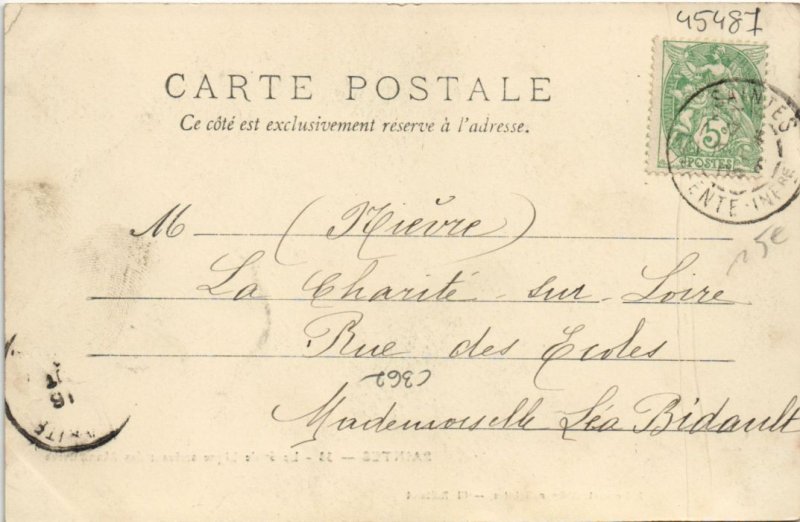 45487
CARTE POSTALE
Ce côté est exclusivement réservé à l'adresse.
5c
POSTES
SAINTES
ENTE-INFRE
M (Nièvre)
25e
La Charité-sur-Loire
Rue des Ecoles
C362
Mademoiselle Léa Bidault
16
ARITE
SAINTES